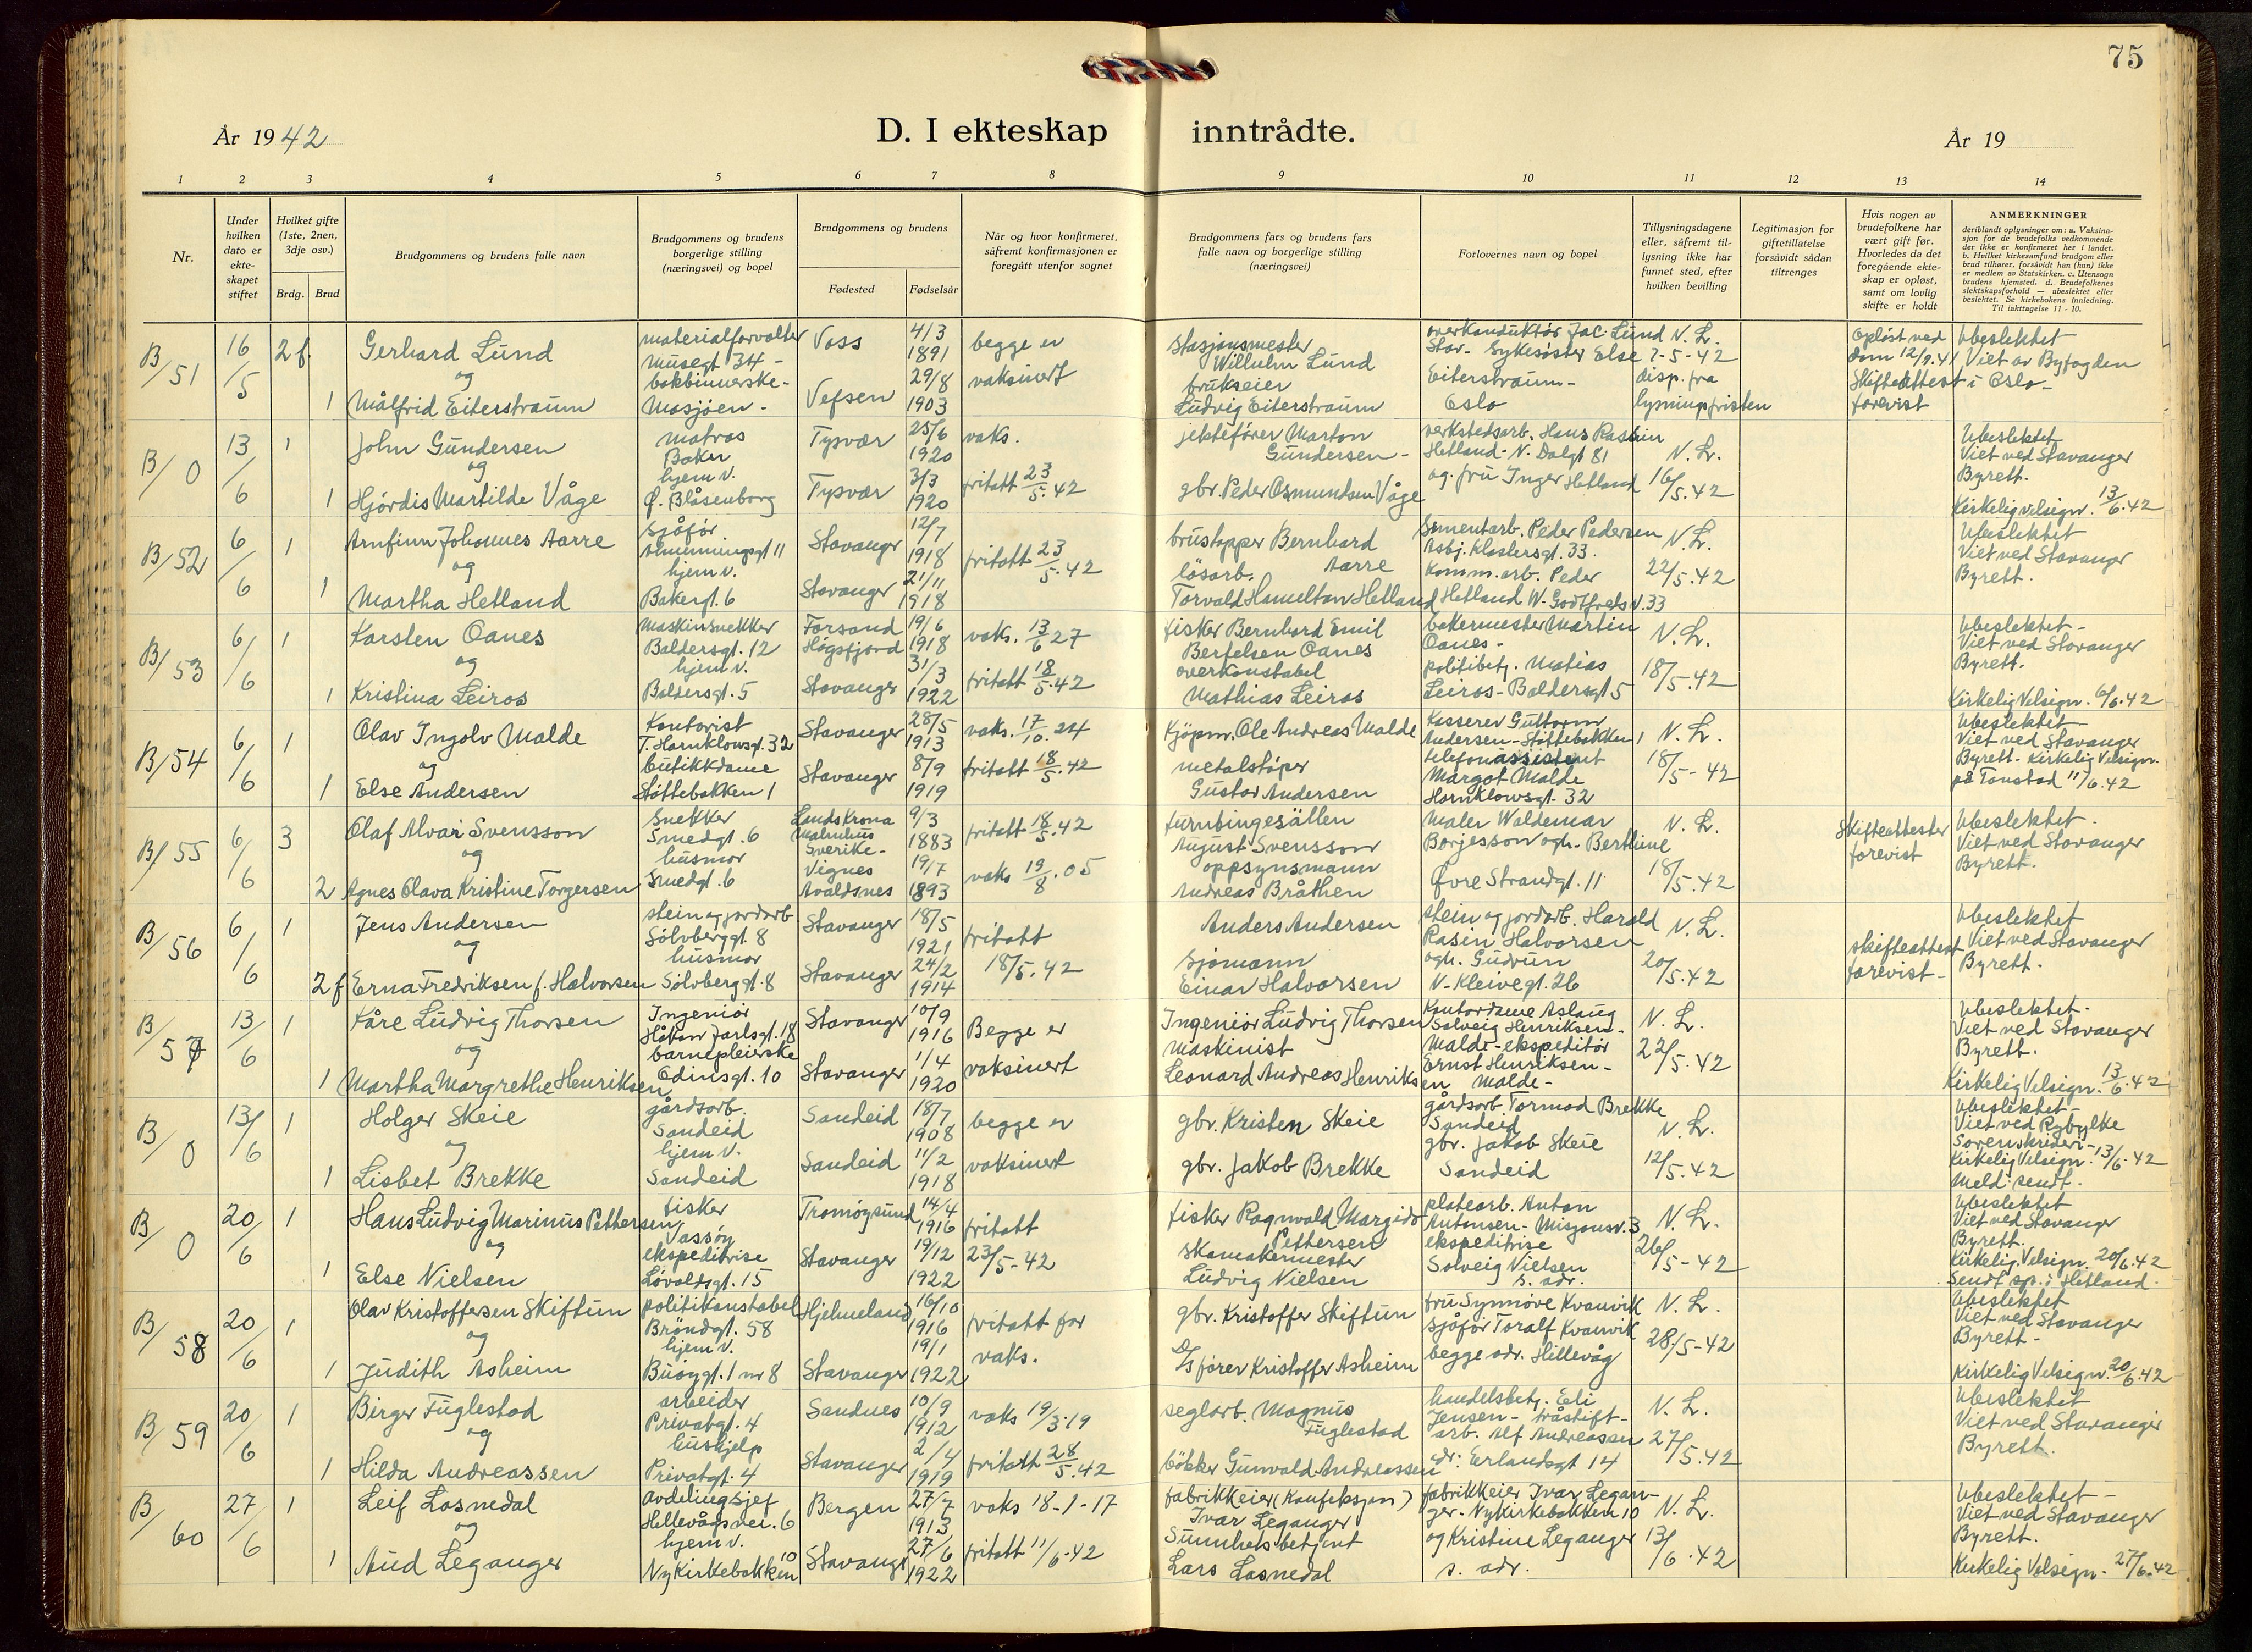 75
År 1942
D. I ekteskap inntrådte.
År 19
1 2 3 4 5 6 7 8 9 10 11 12 13 14
Nr.
Under hvilken dato er ekteskapet stiftet
Hvilket gifte (1ste, 2nen, 3dje osv.)
Brdg. Brud
Brudgommens og brudens fulle navn
Brudgommens og brudens borgerlige stilling (næringsvei) og bopel
Brudgommens og brudens
Fødested Fødselsår
Når og hvor konfirmeret, såfremt konfirmasjonen er foregått utenfor sognet
Brudgommens fars og brudens fars fulle navn og borgerlige stilling (næringsvei)
Forlovernes navn og bopel
Tillysningsdagene eller, såfremt tillysning ikke har funnet sted, efter hvilken bevilling
Legitimasjon for giftetillatelse forsåvidt sådan tiltrenges
Hvis nogen av brudefolkene har vært gift før. Hvorledes da det foregående ekteskap er opløst, samt om lovlig skifte er holdt
ANMERKNINGER
deriblandt oplysninger om: a. Vaksinasjon for de brudefolks vedkommende der ikke er konfirmeret her i landet. b. Hvilket kirkesamfund brudgom eller brud tilhører, forsåvidt han (hun) ikke er medlem av Statskirken. c. Utensogn brudens hjemsted. d. Brudefolkenes slektskapsforhold — ubeslektet eller beslektet. Se kirkebokens innledning. Til iakttagelse 11 - 10.
B/51 16/5 2 f.
Gerhard Lund
og
1 Målfrid Eiterstraum
materialforvalter
Musegt 34 -
bokbinnerske -
Mosjøen -
Voss 4/3 1891
Vefsen 29/8 1903
begge er
vaksinert
stasjonsmester
Wilhelm Lund
brukseier
Ludvig Eiterstraum
overkonduktør Jac. Lund
Stav- sykesøster Else
Eiterstraum -
Oslo
N. L.
2-5-42
disp. fra
lysningsfristen
Opløst ved
dom 12/9.41
Skifteattest
forevist
Ubeslektet
Viet av Byfogden
i Oslo -
B/0 13/6 1
John Gundersen
og
1 Hjørdis Martilde Våge
matros
Boker
hjem v.
Ø. Blåsenborg
Tysvær 25/6 1920
Tysvær 3/3 1920
vaks.
fritatt 23/5.42
jektefører Marton
Gundersen -
gbr. Peder Osmundsen Våge
verkstedsarb. Hans Rassin
Hetland - N. Dalgt 81
og fru Inger Hetland
N. L.
16/5.42
Ubeslektet
Viet ved Stavanger
Byrett.
Kirkelig velsign. 13/6.42
B/52 6/6 1
Arnfinn Johannes Aarre
og
1 Martha Hetland
Sjåfør
Almenningsgt 11
hjem v.
Bakergt. 6
Stavanger 12/7 1918
Stavanger 21/11 1918
fritatt 23/5.42
brustapper Bernhard
Aarre
løsarb.
Torvald Hamelton Hetland
Sementarb. Peder Pedersen
Asbj. Klostersgt. 33.
Komm. arb. Peder
Hetland W. Godtfreds v. 33
N. L.
22/5.42
Ubeslektet
Viet ved Stavanger
Byrett.
B/53 6/6 1
Karsten Oanes
og
1 Kristina Leiros
Maskinsnekker
Baldersgt. 12
hjem v.
Baldersgt. 5
Forsand
Høgsfjord 19/6 1918
Stavanger 31/3 1922
vaks. 13/6 27
fritatt 18/5.42
fisker Bernhard Emil
Bertelsen Oanes
overkonstabel
Mathias Leiros
bakermester Martin
Oanes -
politibetj. Matias
Leiros - Baldersgt 5
N. L.
18/5.42
Ubeslektet -
Viet ved Stavanger
Byrett.
Kirkelig Velsign. 6/6.42
B/54 6/6 1
Olav Ingolv Malde
og
1 Else Andersen
Kontorist
T. Hornklowsgt. 32
butikkdame
Støttebakken 1
Stavanger 28/5 1913
Stavanger 8/9 1919
vaks. 17/10.24
fritatt 18/5.42
Kjøpm. Ole Andreas Malde
metalstøper
Gustav Andersen
Kasserer Guttorm
Andersen - Støttebakken 1
telefonassistent
Margot Malde
Hornklowsgt. 32
N. L.
18/5-42
Ubeslektet -
Viet ved Stavanger
Byrett - Kirkelig Velsign.
på Tonstad 11/6.42
B/55 6/6 3
Olaf Alvar Svensson
og
2 Agnes Olava Kristine Torgersen
Snekker
Smedgt. 6
husmor
Smedgt. 6
Landskrona
Malmhus
Sverike - 9/3 1883
Vignes
Avaldsnes 19/7 1893
fritatt 18/5.42
vaks 19/8.05
August Svensson
oppsynsmann
Andreas Bråthen
Maler Waldemar
Borjesson og h. Berthine
Øvre Strandgt. 11
N. L.
18/5.42
Skifteattester
forevist
Ubeslektet.
Viet ved Stavanger
Byrett.
B/56 6/6 1
Jens Andersen
og
2 f Erna Fredriksen f. Halvorsen
stein og jordarb.
Sølvberggt. 8
husmor
Sølvberggt. 8
Stavanger 18/5 1921
Stavanger 24/2 1914
fritatt
18/5.42
Anders Andersen
Sjømann
Einar Halvorsen
stein og jordarb. Harald
Rasin Halvorsen
og h. Gudrun
V-Kleivegt. 26
N. L.
20/5.42
skifteattest
forevist -
Ubeslektet
Viet ved Stavanger
Byrett.
B/57 13/6 1
Kåre Ludvig Thorsen
og
1 Martha Margrethe Henriksen
Ingeniør
Håkon Jarlsgt. 18
barnepleierske
Odinsgt. 10
Stavanger 10/9 1916
Stavanger 1/4 1920
Begge er
vaksinert
Ingeniør Ludvig Thorsen
Maskinist
Leonard Andreas Henriksen
Kontordame Aslaug
Solveig Henriksen -
Malde - ekspeditør
Ernst Henriksen -
Malde -
N. L.
22/5.42
Ubeslektet -
Viet ved Stavanger
Byrett.
Kirkelig Velsign. 13/6.42
B/0 13/6 1
Holger Skeie
og
1 Lisbet Brekke
gårdsarb.
Sandeid
hjem v.
Sandeid
Sandeid 18/7 1908
Sandeid 11/2 1918
begge er
vaksinert
gbr. Kristen Skeie
gbr. Jakob Brekke
gårdsarb. Tormod Brekke
Sandeid
gbr. Jakob Skeie
Sandeid
N. L.
12/5.42
Ubeslektet -
Viet ved Ryfylke
Sorenskriveri -
Kirkelig Velsign. 13/6.42
Meld. sendt.
B/0 20/6 1
Hans Ludvig Marinus Pettersen
og
1 Else Nielsen
fisker
Vassøy
ekspeditrise
Løvoldsgt. 15
Tromøysund 14/4 1916
Stavanger 19/12 1922
fritatt
23/5-42
fisker Ragnvald Margido
Pettersen
skomakermester
Ludvig Nielsen
platearb. Anton
Antonsen - Misjonsv. 3
ekspeditrise
Solveig Nielsen
s. adr.
N. L.
26/5-42
Ubeslektet
Viet ved Stavanger
Byrett.
Kirkelig Velsign. 20/6.42
Sendt spr. i Hetland.
B/58 20/6 1
Olav Kristoffersen Skiftun
og
1 Judith Asheim
politikonstabel
Brøndgt. 58
hjem v.
Buøygt. 1 nr 8
Hjelmeland 16/10 1916
Stavanger 19/1 1922
fritatt for
vaks.
gbr. Kristoffer Skiftun
D/S fører Kristoffer Asheim
fru Synnøve Kvanvik
Sjåfør Toralf Kvanvik
begge adr. Hillevåg
N. L.
28/5-42
Ubeslektet
Viet ved Stavanger
Byrett -
Kirkelig Velsign. 20/6.42
B/59 20/6 1
Birger Fuglestad
og
1 Hilda Andreassen
arbeider
Privatgt. 4
hushjelp
Privatgt. 4
Sandnes 10/9 1912
Stavanger 2/4 1919
vaks 19/3.19
fritatt 28/5.42
seglarb. Magnus
Fuglestad
bøkker Gunvald Andreassen
handelsbetj. Eli
Jensen - tråstift -
arb. Alf Andreassen
adr: Erlandsgt 14
N. L.
27/5.42
Ubeslektet
Viet ved Stavanger
Byrett.
B/60 27/6 1
Leif Losnedal
og
1 Aud Leganger
Avdelingsjef
Hellevågsvei. 6
hjem v.
Nykirkebakken 10
Bergen 27/7 1913
Stavanger 27/6 1922
vaks 18-1-17
fritatt 11/6.42
fabrikkeier (Konfeksjon)
Ivar Leganger
Sunnhetsbetjent
Lars Losnedal
fabrikkeier Ivar Legan-
ger - Nykirkebakken 10
og Kristine Leganger
s. adr.
N. L.
13/6.42
Ubeslektet -
Viet ved Stavanger
Byrett.
Kirkelig Velsign. 27/6.42